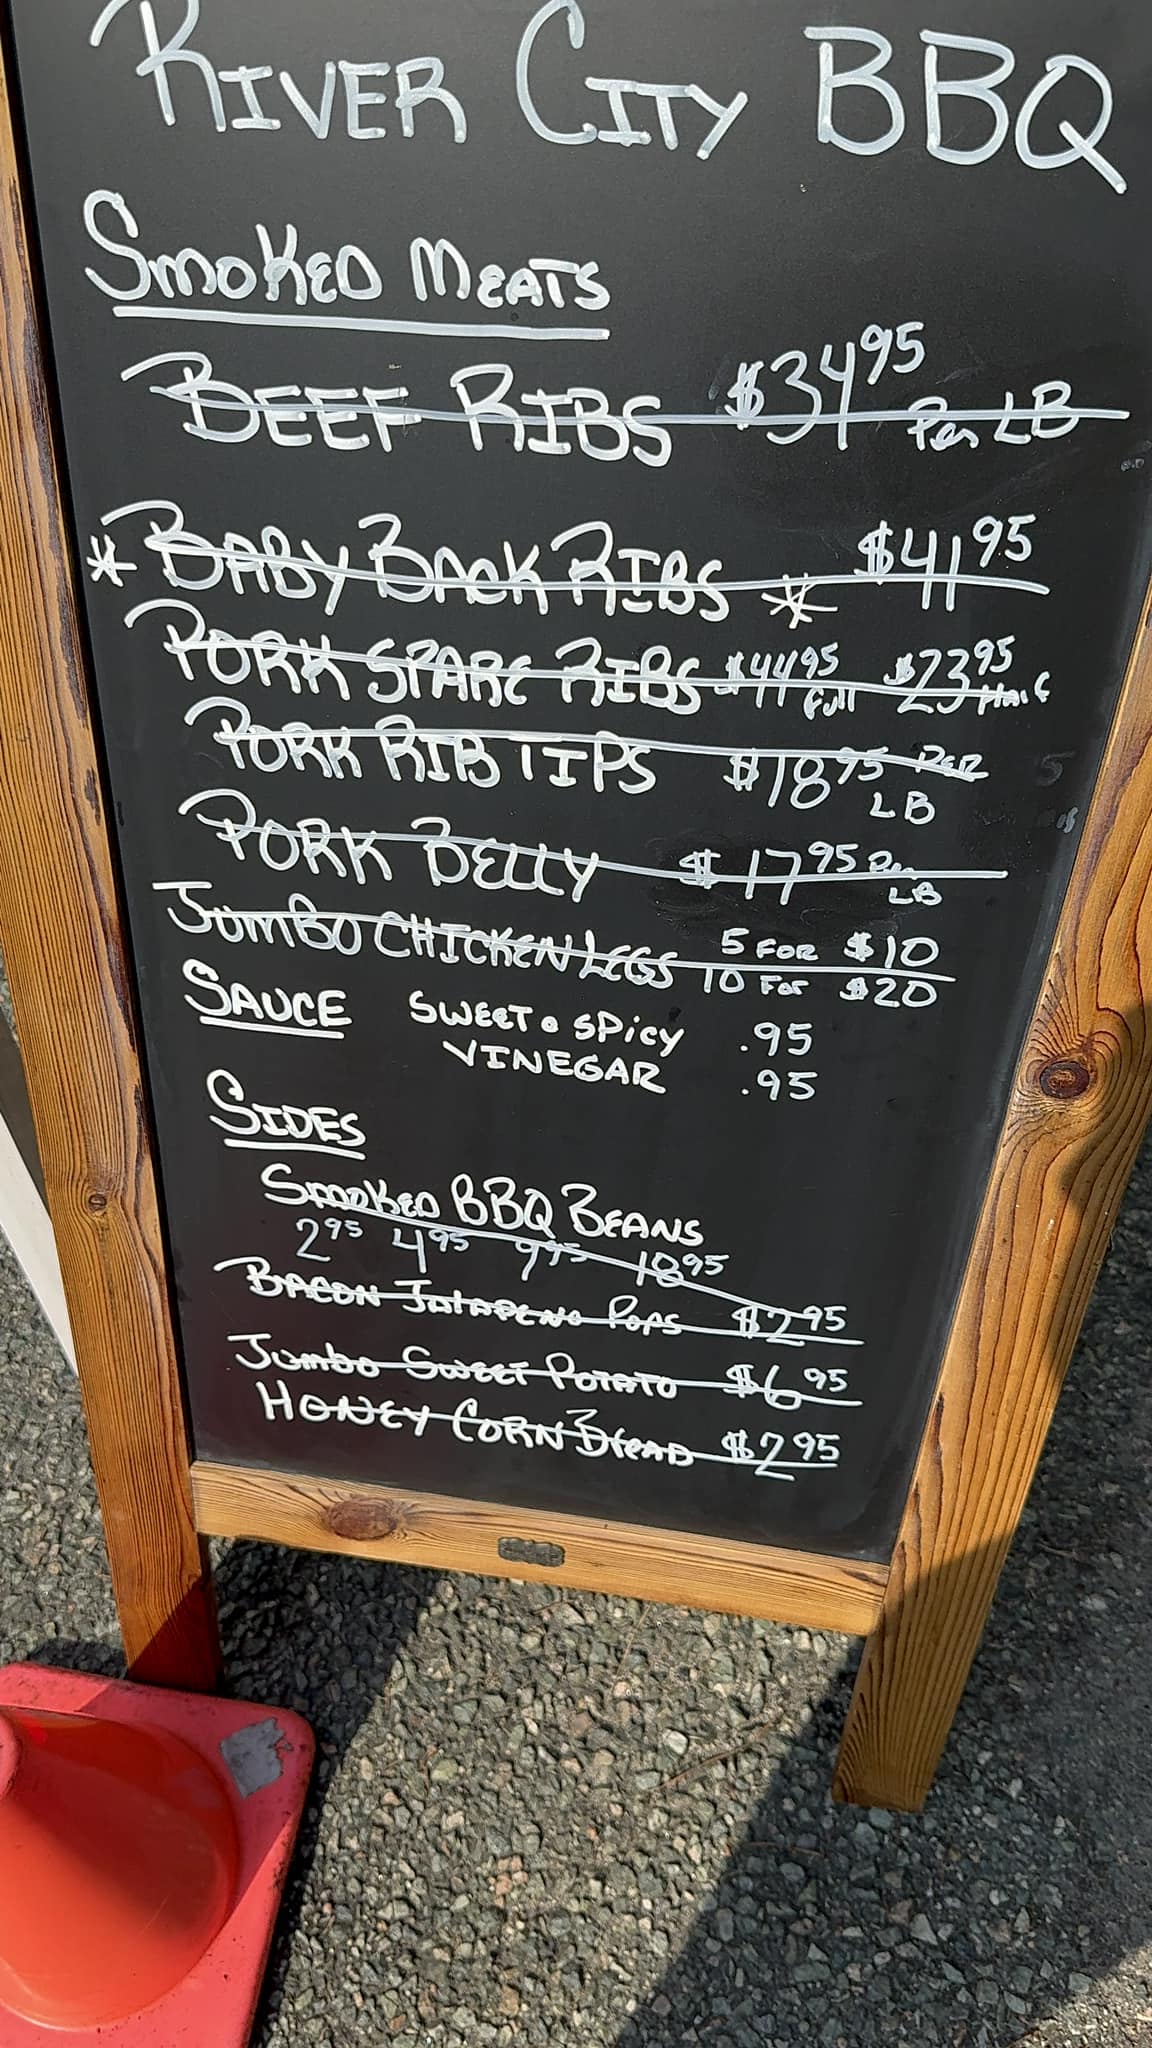 RIVER CITY BBQ
SMOKED MEATS
BEEF RIBS $34.95 Per LB
* BABY BACK RIBS * $41.95
PORK SPARE RIBS $44.95 Full $23.95 Half
PORK RIB TIPS $18.95 PER LB
PORK BELLY $17.95 Per LB
JUMBO CHICKEN LEGS 5 FOR $10
10 For $20
SAUCE SWEET & SPICY .95
VINEGAR .95
SIDES
SMOKED BBQ BEANS
2.95 4.95 9.95 18.95
BACON JALAPENO POPS $2.95
JUMBO SWEET POTATO $6.95
HONEY CORN BREAD $2.95